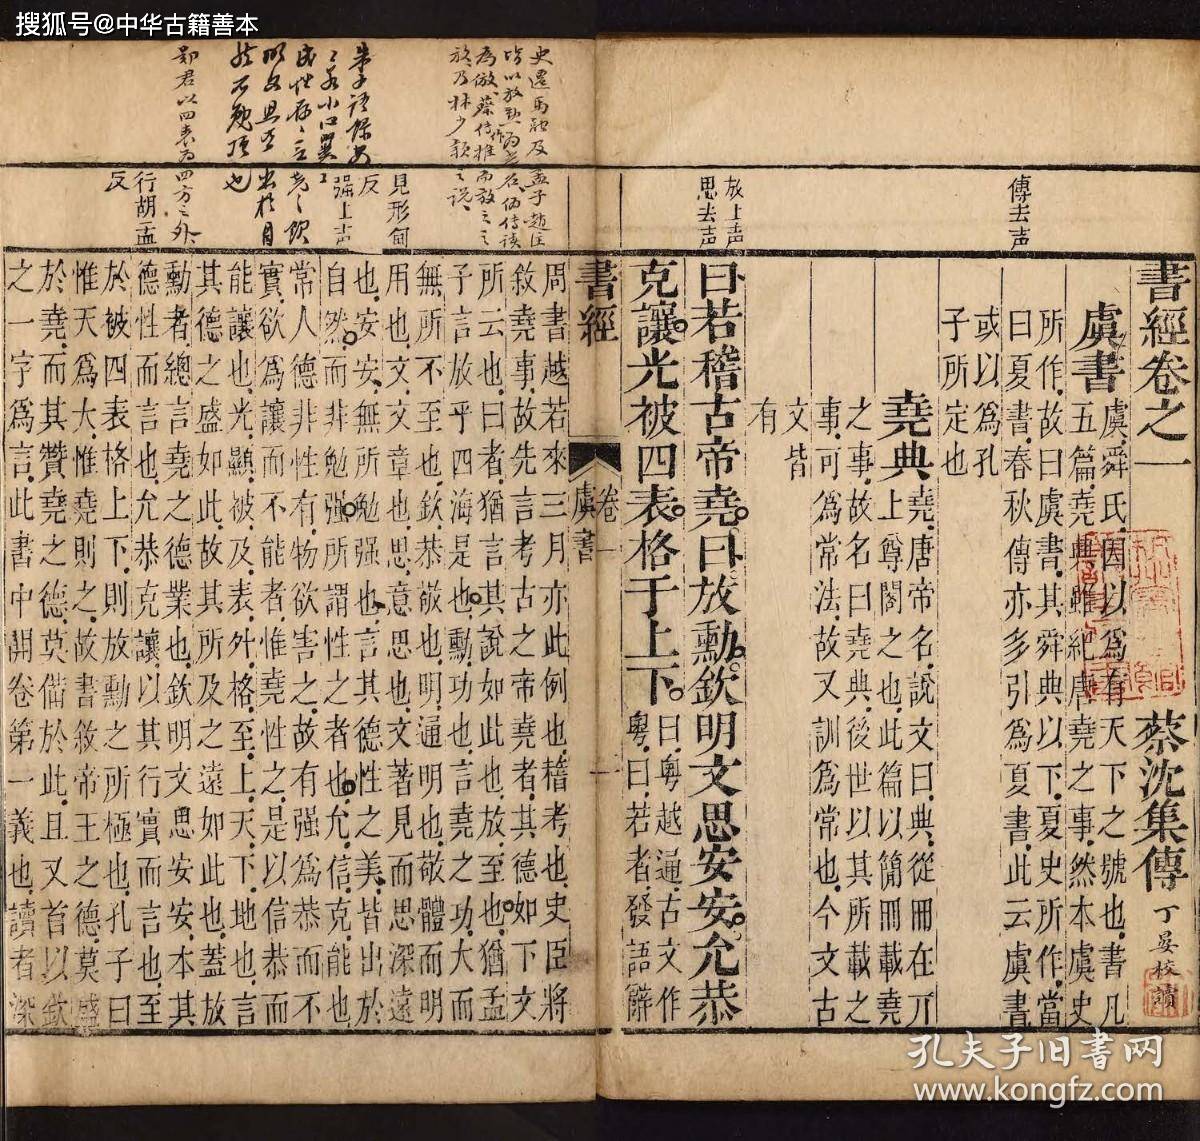 搜狐号@中华古籍善本
傳去声
放上声
思去声
書經卷之一 蔡沈集傳 丁晏校讀
虞書 虞舜氏因以爲有天下之號也書凡
五篇堯典雖紀唐堯之事然本虞史
所作故曰虞書其舜典以下夏史所作當
曰夏書春秋傳亦多引爲夏書此云虞書
或以爲孔
子所定也
堯典 堯唐帝名說文曰典從冊在丌
上尊閣之也此篇以簡冊載堯
之事故名曰堯典後世以其所載之
事可爲常法故又訓爲常也今文古
文皆
有
曰若稽古帝堯曰放勳欽明文思安安允恭
克讓光被四表格于上下 曰粵越通古文作
粵曰若者發語辭
書經 卷一 虞書 一
史遷馬融及孟子趙注
皆以放勳爲堯名僞傳讀
爲倣蔡傳作推而放之之
放乃林少穎之說
見形甸
反
强上声
鄭君以四表爲四方之外
行胡孟
反
周書越若來三月亦此例也稽考也史臣將
敘堯事故先言考古之帝堯者其德如下文
所云也曰者猶言其說如此也放至也猶孟
子言放乎四海是也勳功也言堯之功大而
無所不至也欽恭敬也明通明也敬體而明
用也文文章也思意思也文著見而思深遠
也安安無所勉强也言其德性之美皆出於
自然而非勉强所謂性之者也允信克能也
常人德非性有物欲害之故有强爲恭而不
實欲爲讓而不能者惟堯性之是以信恭而
能讓也光顯被及表外格至上天下地也言
其德之盛如此故其所及之遠如此也蓋放
勳者總言堯之德業也欽明文思安安本其
德性而言也允恭克讓以其行實而言也至
於被四表格上下則放勳之所極也孔子曰
惟天爲大惟堯則之故書敘帝王之德莫盛
於堯而其贊堯之德莫備於此且又首以欽
之一字爲言此書中開卷第一義也讀者深
孔夫子旧书网
www.kongfz.com